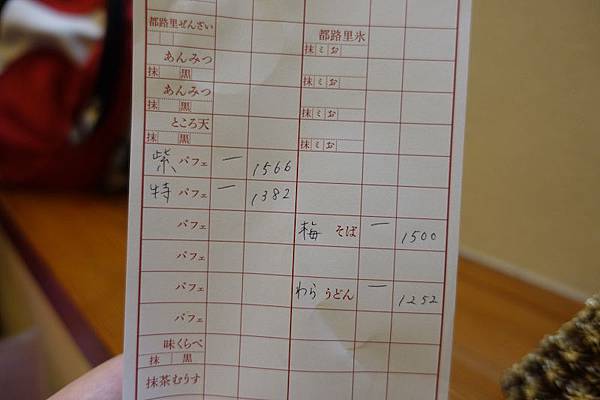 都路里ぜんざい
都路里氷
抹 ミ お
あんみつ
抹 黒
抹 ミ お
あんみつ
抹 黒
抹 ミ お
ところ天
抹 黒
抹 ミ お
紫 パフェ 一 1566
特 パフェ 一 1382
パフェ
梅 そば 一 1500
パフェ
パフェ
わら うどん 一 1252
パフェ
味くらべ
抹 黒
抹茶むりす